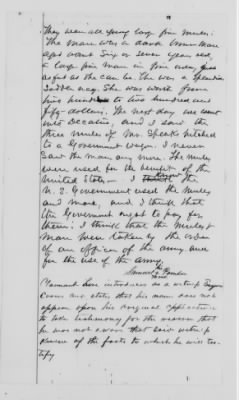 They were all young large fine mules.
The mare was a dark brown mare
aged about six or seven years old
a large fine mare in fine order, fine
as fat as she can be. She was a splendid
saddle nag. She was worth from
two hundred and
fifty dollars. The next day we went
into Decatur and I saw the
three mules of Mr. Speaks hitched
to a Government wagon. I never
saw the mare any more. The mules
were used for the benefit of the
United States. I the
U. S. Government used the mules
and mare, and I think that
the Government ought to pay for
them; I think that the mules &
mare were taken by the order
of an officer of the army and
for the use of the army.
Samuel his
mark
Claimant here introduces as a witness
and states that his name does not
appear upon his original application
to take testimony for the reason that
he was not aware that said witness
knew of the facts to which he will tes-
tify